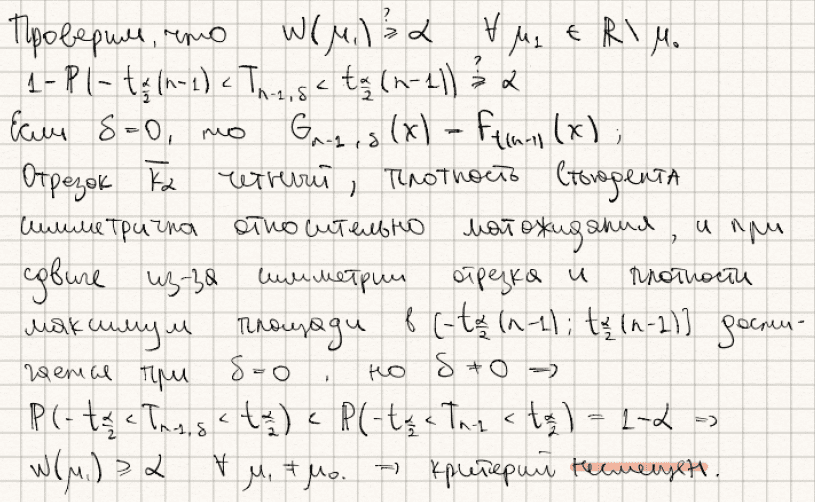 Проверим, что W(μ₁) ≥? α ∀ μ₁ ∈ ℝ\μ₀
1 - P(-t_{α/2}(n-1) < T_{n-1,δ} < t_{α/2}(n-1)) ≥? α
Если δ=0, то G_{n-1,δ}(x) = F_{t(n-1)}(x);
Отрезок \overline{K_α} четный, плотность Стьюдента
симметрична относительно матожидания, и при
сдвиге из-за симметрии отрезка и плотности
максимум площади в [-t_{α/2}(n-1); t_{α/2}(n-1)] дости-
гается при δ=0, но δ≠0 =>
P(-t_{α/2} < T_{n-1,δ} < t_{α/2}) < P(-t_{α/2} < T_{n-1} < t_{α/2}) = 1-α =>
W(μ₁) ≥ α ∀ μ₁ ≠ μ₀. => критерий несмещен.